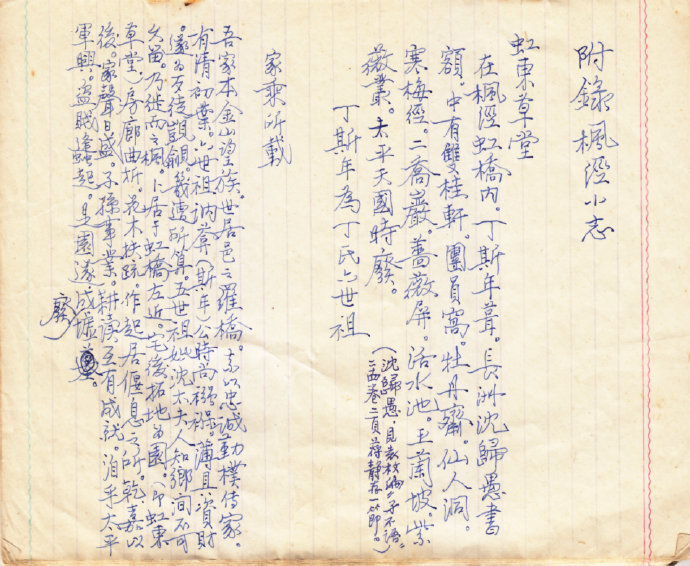 附錄楓涇小志
虹東草堂
在楓涇虹橋內。丁斯年葺。長洲沈歸愚書
額。中有雙桂軒。團員窩。牡丹齋。仙人洞。
寒梅徑。二喬巖。薔薇屏。活水池。玉蘭坡。紫
薇叢。太平天國時廢。
(沈歸愚，見袁枚編“子不語”
二函卷二頁蔣静存一節。)
丁斯年為丁氏六世祖
家乘所載
吾家本金山望族。世居邑之羅橋。素以忠誠勤樸傳家。
有清初葉。六世祖訥菴(斯年)公時尚襁褓。薄具資財
遂為歹徒覬覦。幾遭所算。五世祖妣沈太夫人知鄉间不可
久留。乃徙而之楓。卜居于虹橋左近。宅後拓地為園。(即虹東
草堂)房廊曲折。花木扶疏。作起居偃息之所。乾嘉以
後。家聲日盛。子孫事業。耕讀互有成就。洎乎太平
軍興。盜賊蠭起。是園遂成墟。
廢